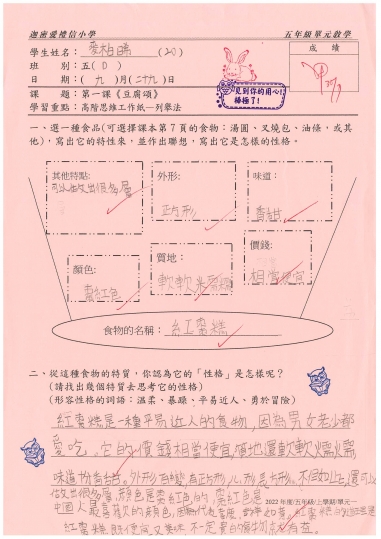 迦密愛禮信小學 五年級單元教學
學生姓名： 麥柏晴 (20)
成績
班 別：五( D )
日 期：( 九 )月( 二十九 )日
見到你的用心！
棒極了！
課 題：第一課《豆腐頌》
學習重點：高階思維工作紙—列舉法
一、選一種食品(可選擇課本第 7 頁的食物：湯圓、叉燒包、油條，或其
他)，寫出它的特性來，並作出聯想，寫出它是怎樣的性格。
其他特點:
可以做出很多層
外形:
正方形
味道：
香甜
顏色:
棗紅色
質地：
軟軟糯糯
價錢:
相當便宜
食物的名稱： 紅棗糕
二、從這種食物的特質，你認為它的「性格」是怎樣呢？
(請找出幾個特質去思考它的性格)
(形容性格的詞語：溫柔、暴躁、平易近人、勇於冒險)
紅棗糕是一種平易近人的食物，因為男女老少都
愛吃。它的價錢相當便宜，質地還軟軟糯糯
味道 香甜。外形百變，有正方形、 形、長方形。不但如此，還可以
做出很多層，顏色是棗紅色的，棗紅色是
中國人最喜慶的顏色，
2022 年度/五年級/上學期/單元一
紅棗糕 便宜 又美味 不一定 貴的食物 有益。